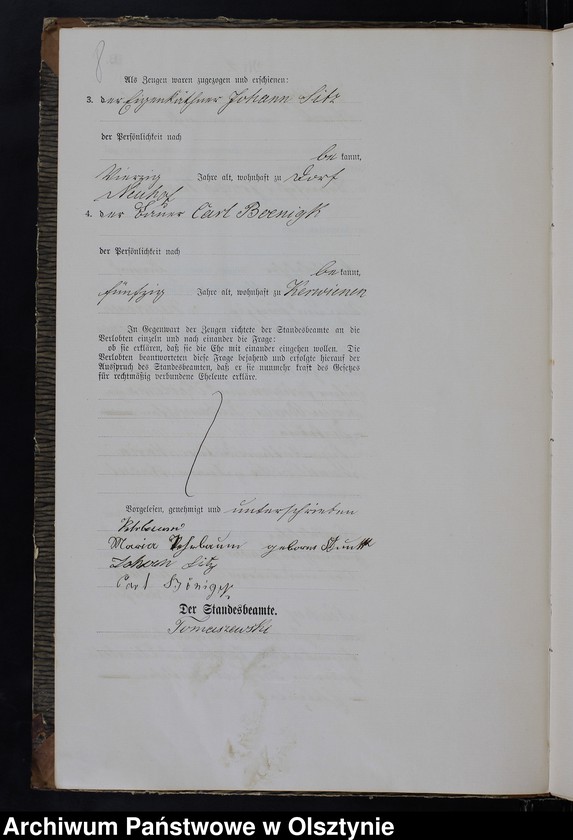 8
Als Zeugen waren zugezogen und erschienen:
3. der Eigenkäthner Johann Sitz
der Persönlichkeit nach
be kannt,
Vierzig Jahre alt, wohnhaft zu Dorf
Neuhof
4. der Bauer Carl Boenigk
der Persönlichkeit nach
be kannt,
fünfzig Jahre alt, wohnhaft zu Kerwienen
In Gegenwart der Zeugen richtete der Standesbeamte an die
Verlobten einzeln und nach einander die Frage:
ob sie erklären, daß sie die Ehe mit einander eingehen wollen. Die
Verlobten beantworteten diese Frage bejahend und erfolgte hierauf der
Ausspruch des Standesbeamten, daß er sie nunmehr kraft des Gesetzes
für rechtmäßig verbundene Eheleute erkläre.
Vorgelesen, genehmigt und unterschrieben
Maria geborne
Johann Sitz
Carl Bönigk
Der Standesbeamte.
Tomaszewski
Archiwum Państwowe w Olsztynie